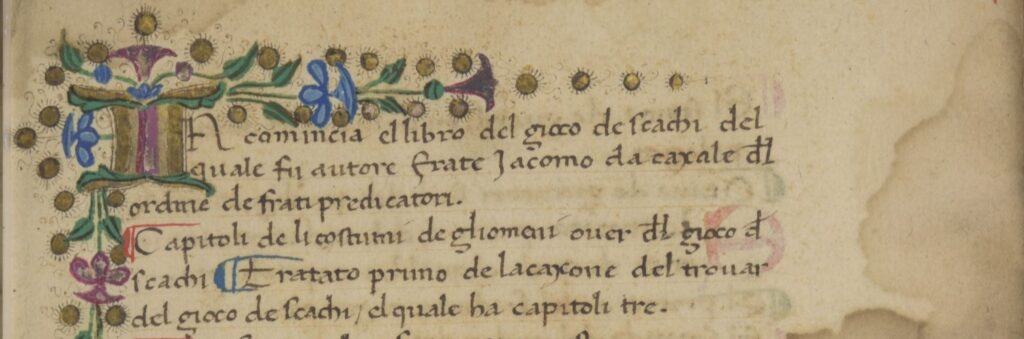 IN comincia el libro del gioco de scachi del
quale fu autore frate Jacomo da caxale dl
ordine de frati predicatori.
Capitoli de li costumi de gliomeni ouer dl gioco d
scachi Tratato primo de lacaxone del trouar
del gioco de scachi / el quale ha capitoli tre.